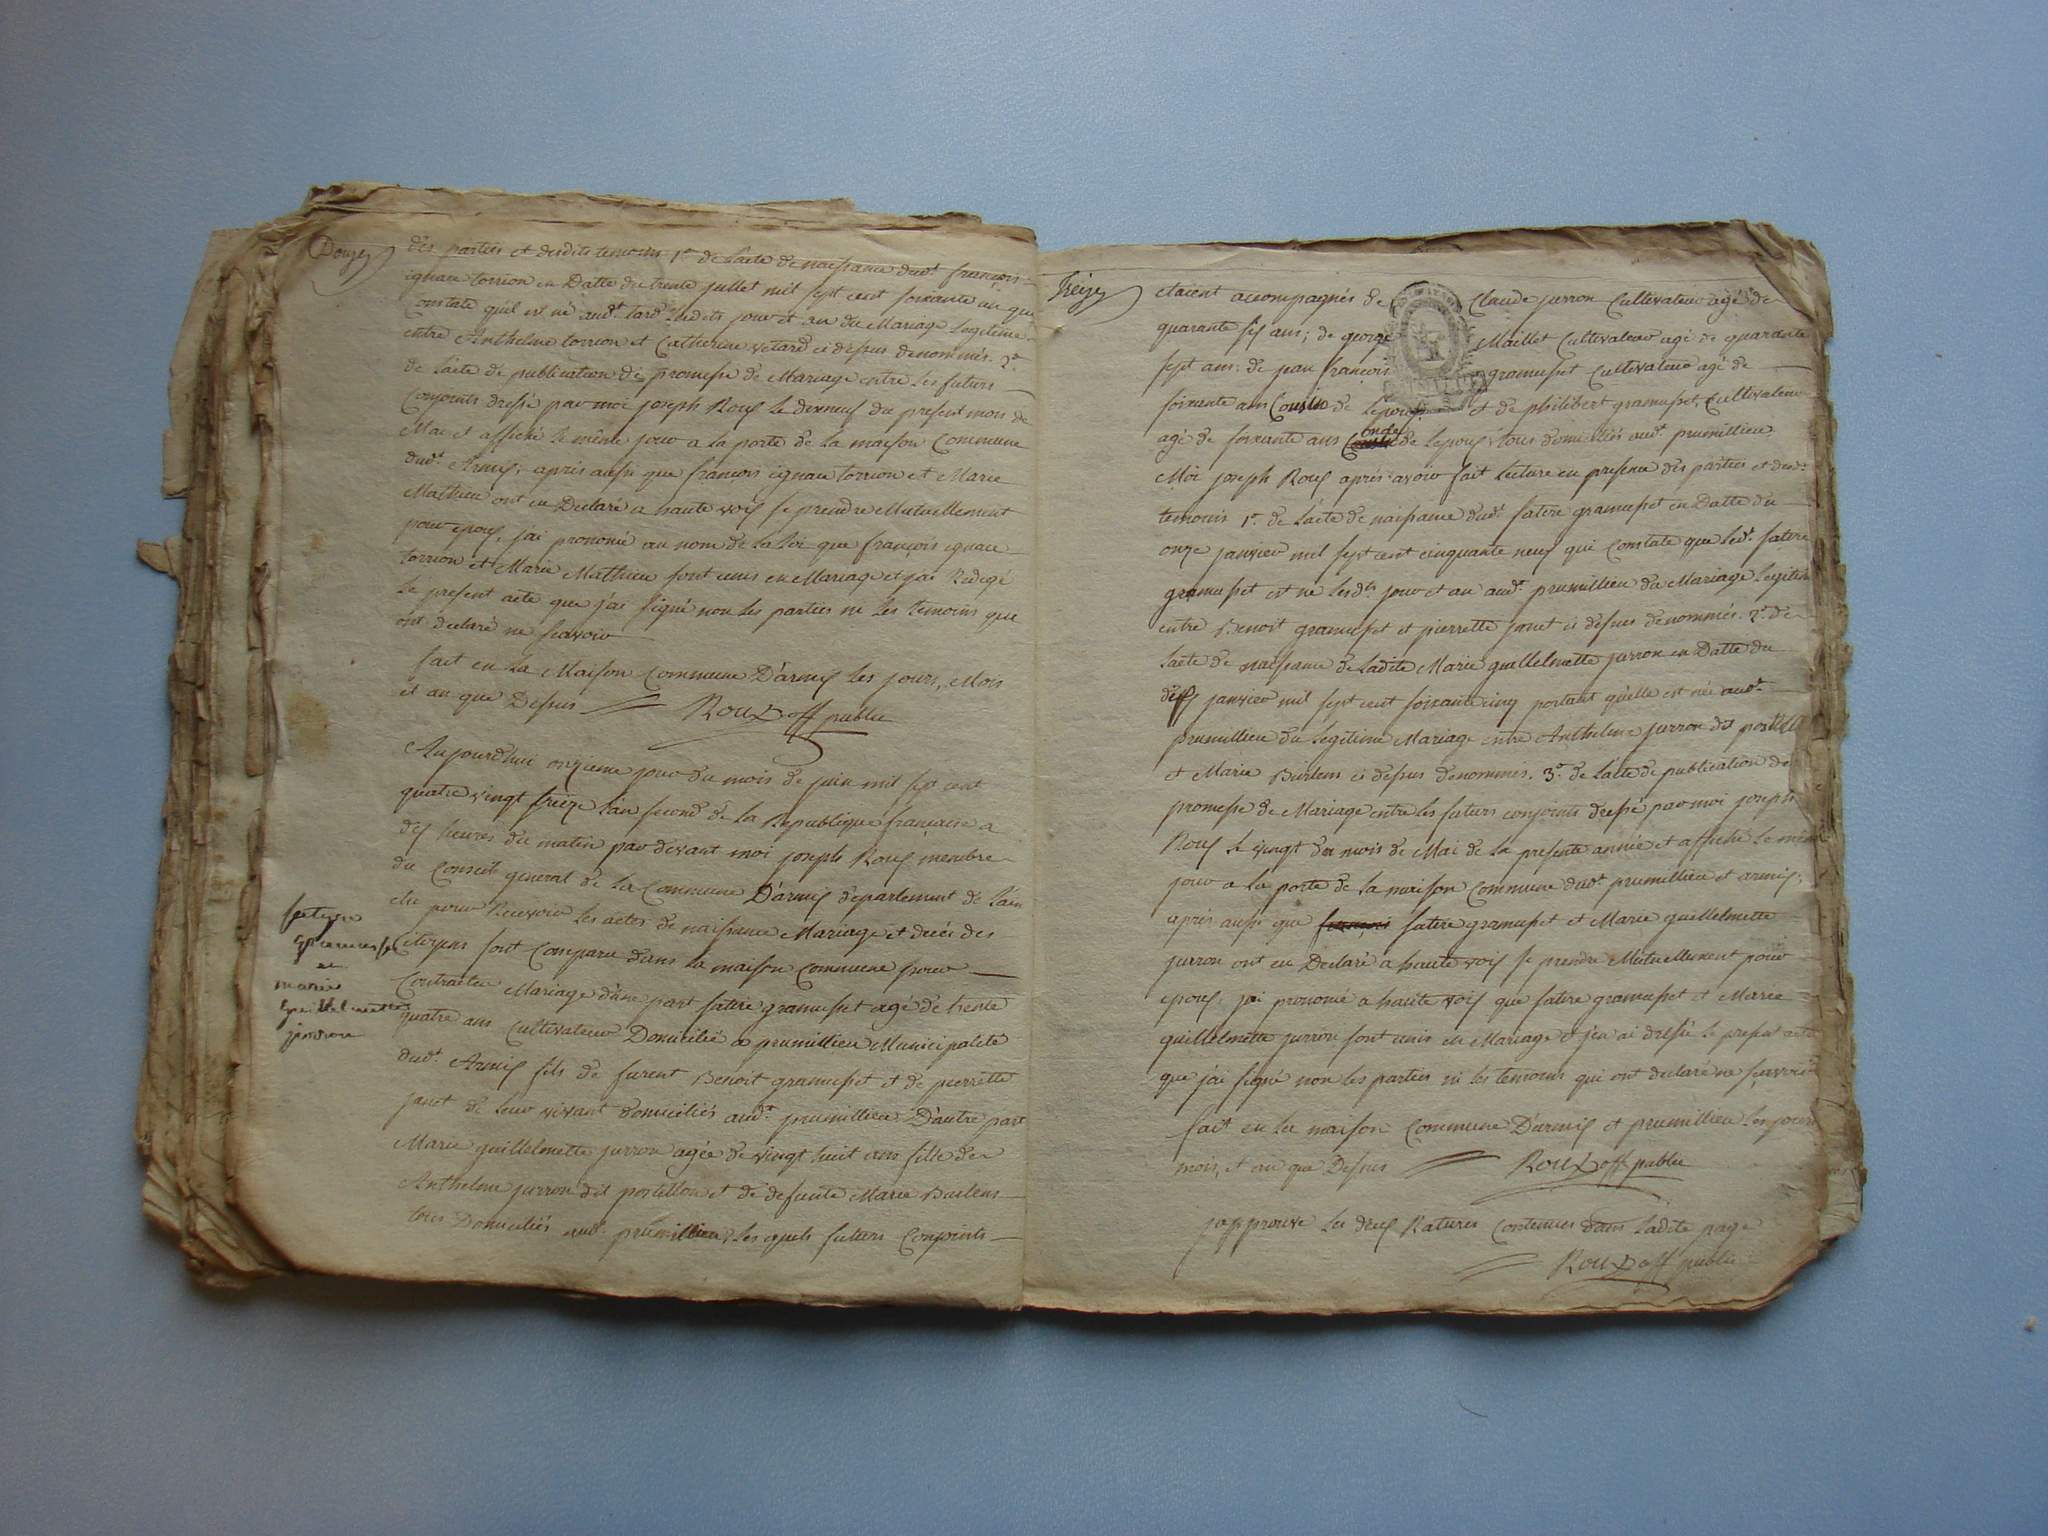 Douze
des parties et desdits temoins 1.° de L'acte de naissance dud.t françois
ignace torrion en Datte du trente juillet mil sept cent soixante un que
Constate quil est né aud.t lesdits jour et an du Mariage Legitime
entre Anthelme torrion et Catherine vetard ci dessus denommés. 2.°
de L'acte de publication de promesse de Mariage entre Les futurs
Conjoints dressé par moi joseph Roux Le dixneuf du present mois de
Mai et affiché le même jour a la porte de la maison Commune
dud.t Armix, après aussi que françois ignace torrion et Marie
Mathieu ont eu Declaré a haute voix se prendre Mutuellement
pour epoux, j'ai prononcé au nom de La Loi que françois ignace
torrion et Marie Mathieu sont unis en Mariage et j'ai Redigé
Le present acte que j'ai signé non Les parties ni Les temoins que
ont declaré ne scavoir
fait en La Maison Commune D'armix Les jours, Mois
et an que Dessus Roux off public
Aujourd'hui onzieme jour du mois de juin mil sept cent
quatre vingt treize L'an second de La Republique francaise a
dix heures du matin par devant moi joseph Roux membre
du Conseil general de La Commune D'armix departement de L'ain
elu pour Recevoir Les actes de naissance Mariage et decés des
Citoyens sont Comparu dans La maison Commune pour
Contracter Mariage d'une part satire gramusset agé de trente
quatre ans Cultivateur Domicilié a prumillieu Municipalité
dud.t Armix fils de furent Benoit gramusset et de pierrette
janet de Leur vivant domiciliés aud.t prumillieu D'autre part
Marie guillelmette jurron agée de vingt huit ans fille de
Anthelme jurron dit postillon et de defunte Marie Burlens
tous Domiciliés aud.t prumillieu, Les quels futurs Conjoints
satire
gramusset
et
marie
guillelmette
jurron
treize
etaient accompagnés de Claude jurron Cultivateur agé de
quarante six ans; de george Maillet Cultivateur agé de quarante
sept ans de jean françois gramusset Cultivateur agé de
soixante ans Cousin de Lepoux et de philibert gramusset, Cultivateur
agé de soixante ans oncle de Lepoux tous domiciliés aud.t prumillieu,
Moi joseph Roux après avoir fait Lecture en presence des parties et desd.
temoins 1.° de L'acte de naissance dud.t satire gramusset en Datte du
onze janvier mil sept cent cinquante neuf qui Constate que Led.t satire
gramusset est né Lesd.ts jour et an aud.t prumillieu du Mariage Legitime
entre Benoit gramusset et pierrette janet ci dessus denommés. 2.° de
L'acte de naissance de Ladite Marie guillelmette jurron en Datte du
dix janvier mil sept cent soixante cinq portant qu'elle est née aud.t
prumillieu du Legitime Mariage entre Anthelme jurron dit postillon
et Marie Burlens ci dessus denommés. 3.° de L'acte de publication de
promesse de Mariage entre Les futurs conjoints dressé par moi joseph
Roux Le vingt du mois de Mai de La presente année et affiché Le même
jour a La porte de La maison Commune dud.t prumillieu et armix,
après aussi que françois satire gramusset et Marie guillelmette
jurron ont eu Declaré a haute voix se prendre Mutuellement pour
epoux, j'ai prononcé a haute voix que satire gramusset et Marie
guillelmette jurron sont unis en Mariage et j'en ai dressé Le present acte
que j'ai signé non Les parties ni Les temoins qui ont declaré ne scavoir
fait en La maison Commune D'armix et prumillieu Les jours
mois, et an que Dessus Roux off public
japprouve Les deux Ratures Contenues dans Ladite page
Roux off public